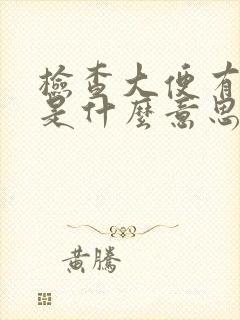 檢查大便有
是什麼意思
黃騰